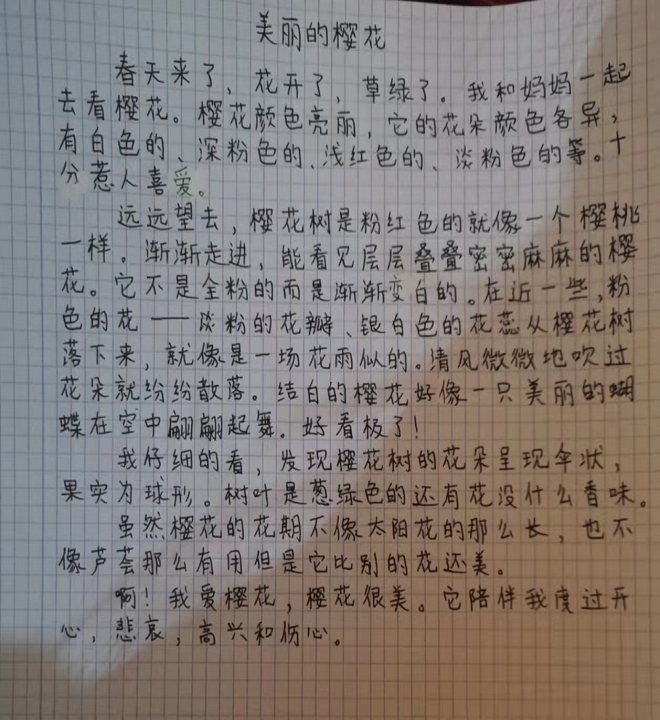 美丽的樱花
春天来了、花开了，草绿了。我和妈妈一起
去看樱花。樱花颜色亮丽，它的花朵颜色各异，
有白色的、深粉色的、浅红色的、淡粉色的等。十
分惹人喜爱。
远远望去，樱花树是粉红色的就像一个樱桃
一样。渐渐走进，能看见层层叠叠密密麻麻的樱
花。它不是全粉的而是渐渐变白的。在近一些，粉
色的花——淡粉的花瓣、银白色的花蕊从樱花树
落下来，就像是一场花雨似的。清风微微地吹过
花朵就纷纷散落。结白的樱花好像一只美丽的蝴
蝶在空中翩翩起舞．好看极了！
我仔细的看，发现樱花树的花朵呈现伞状，
果实为球形。树叶是葱绿色的还有花没什么香味。
虽然樱花的花期不像太阳花的那么长，也不
像芦荟那么有用但是它比别的花还美。
啊！我爱樱花，樱花很美。它陪伴我度过开
心，悲哀，高兴和伤心。